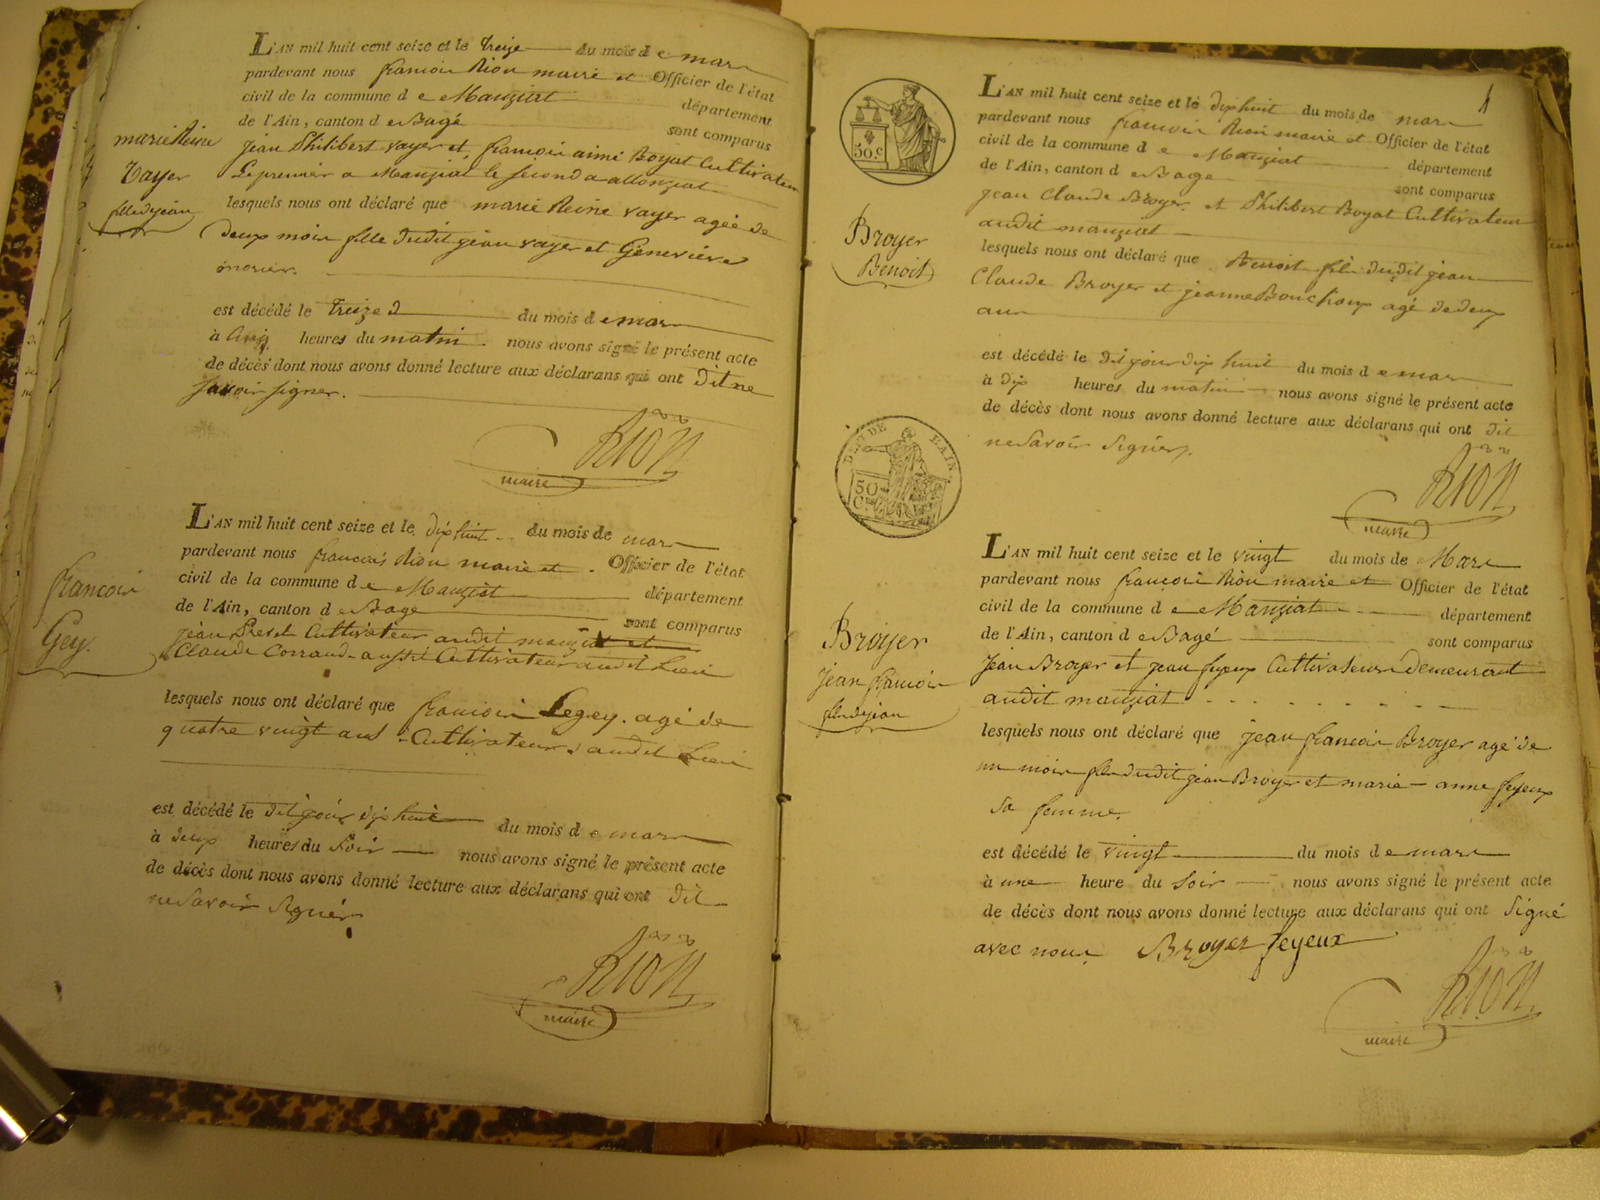 L'AN mil huit cent seize et le treize du mois de mars
pardevant nous françois Rion maire et Officier de l'état
civil de la commune de Manziat département
de l'Ain, canton de Bagé sont comparus
jean Philibert vayer et françois aimé Boyat Cultivateur
Le premier a Manziat le second a
lesquels nous ont déclaré que marie Reine vayer agée de
Deux mois fille dudit jean vayer et Geneviève
marie Reine
Vayer
fille de jean
est décédé le treize d du mois de mars
à cinq heures du matin nous avons signé le présent acte
de décès dont nous avons donné lecture aux déclarans qui ont dit ne
savoir signer.
RION
maire
L'AN mil huit cent seize et le dix huit du mois de mars
pardevant nous françois Rion maire et Officier de l'état
civil de la commune de Manziat département
de l'Ain, canton de Bagé sont comparus
jean Cultivateur audit manziat et
Claude Corraud aussi Cultivateur audit Lieu
lesquels nous ont déclaré que françois Legey agé de
quatre vingt ans Cultivateur audit Lieu
françois
Gey.
est décédé le dit jour dix huit du mois de mars
à deux heures du soir nous avons signé le présent acte
de décès dont nous avons donné lecture aux déclarans qui ont dit
ne savoir signer
RION
maire
50.c
L'AN mil huit cent seize et le dix huit du mois de mars
pardevant nous françois Rion maire et Officier de l'état
civil de la commune de Manziat département
de l'Ain, canton de Bagé sont comparus
jean Claude Broyer et Philibert Boyat Cultivateur
audit manziat
lesquels nous ont déclaré que Benoit fils dudit jean
Claude Broyer et jeanne Bouchoux agé de deux
ans
Broyer
Benoit
est décédé le dit jour dix huit du mois de mars
à dix heures du matin nous avons signé le présent acte
de décès dont nous avons donné lecture aux déclarans qui ont dit
ne savoir signer.
RION
maire
DEPT DE L'AIN.
50
C.
L'AN mil huit cent seize et le vingt du mois de Mars
pardevant nous françois Rion maire et Officier de l'état
civil de la commune de Manziat département
de l'Ain, canton de Bagé sont comparus
jean Broyer et jean feyeux Cultivateurs Demeurant
audit manziat
lesquels nous ont déclaré que jean françois Broyer agé de
un mois fils dudit jean Broyer et marie anne feyeux
sa femme.
Broyer
jean françois
fils de jean
est décédé le vingt du mois de mars
à une heure du soir nous avons signé le présent acte
de décès dont nous avons donné lecture aux déclarans qui ont signé
avec nous Broyer feyeux
RION
maire